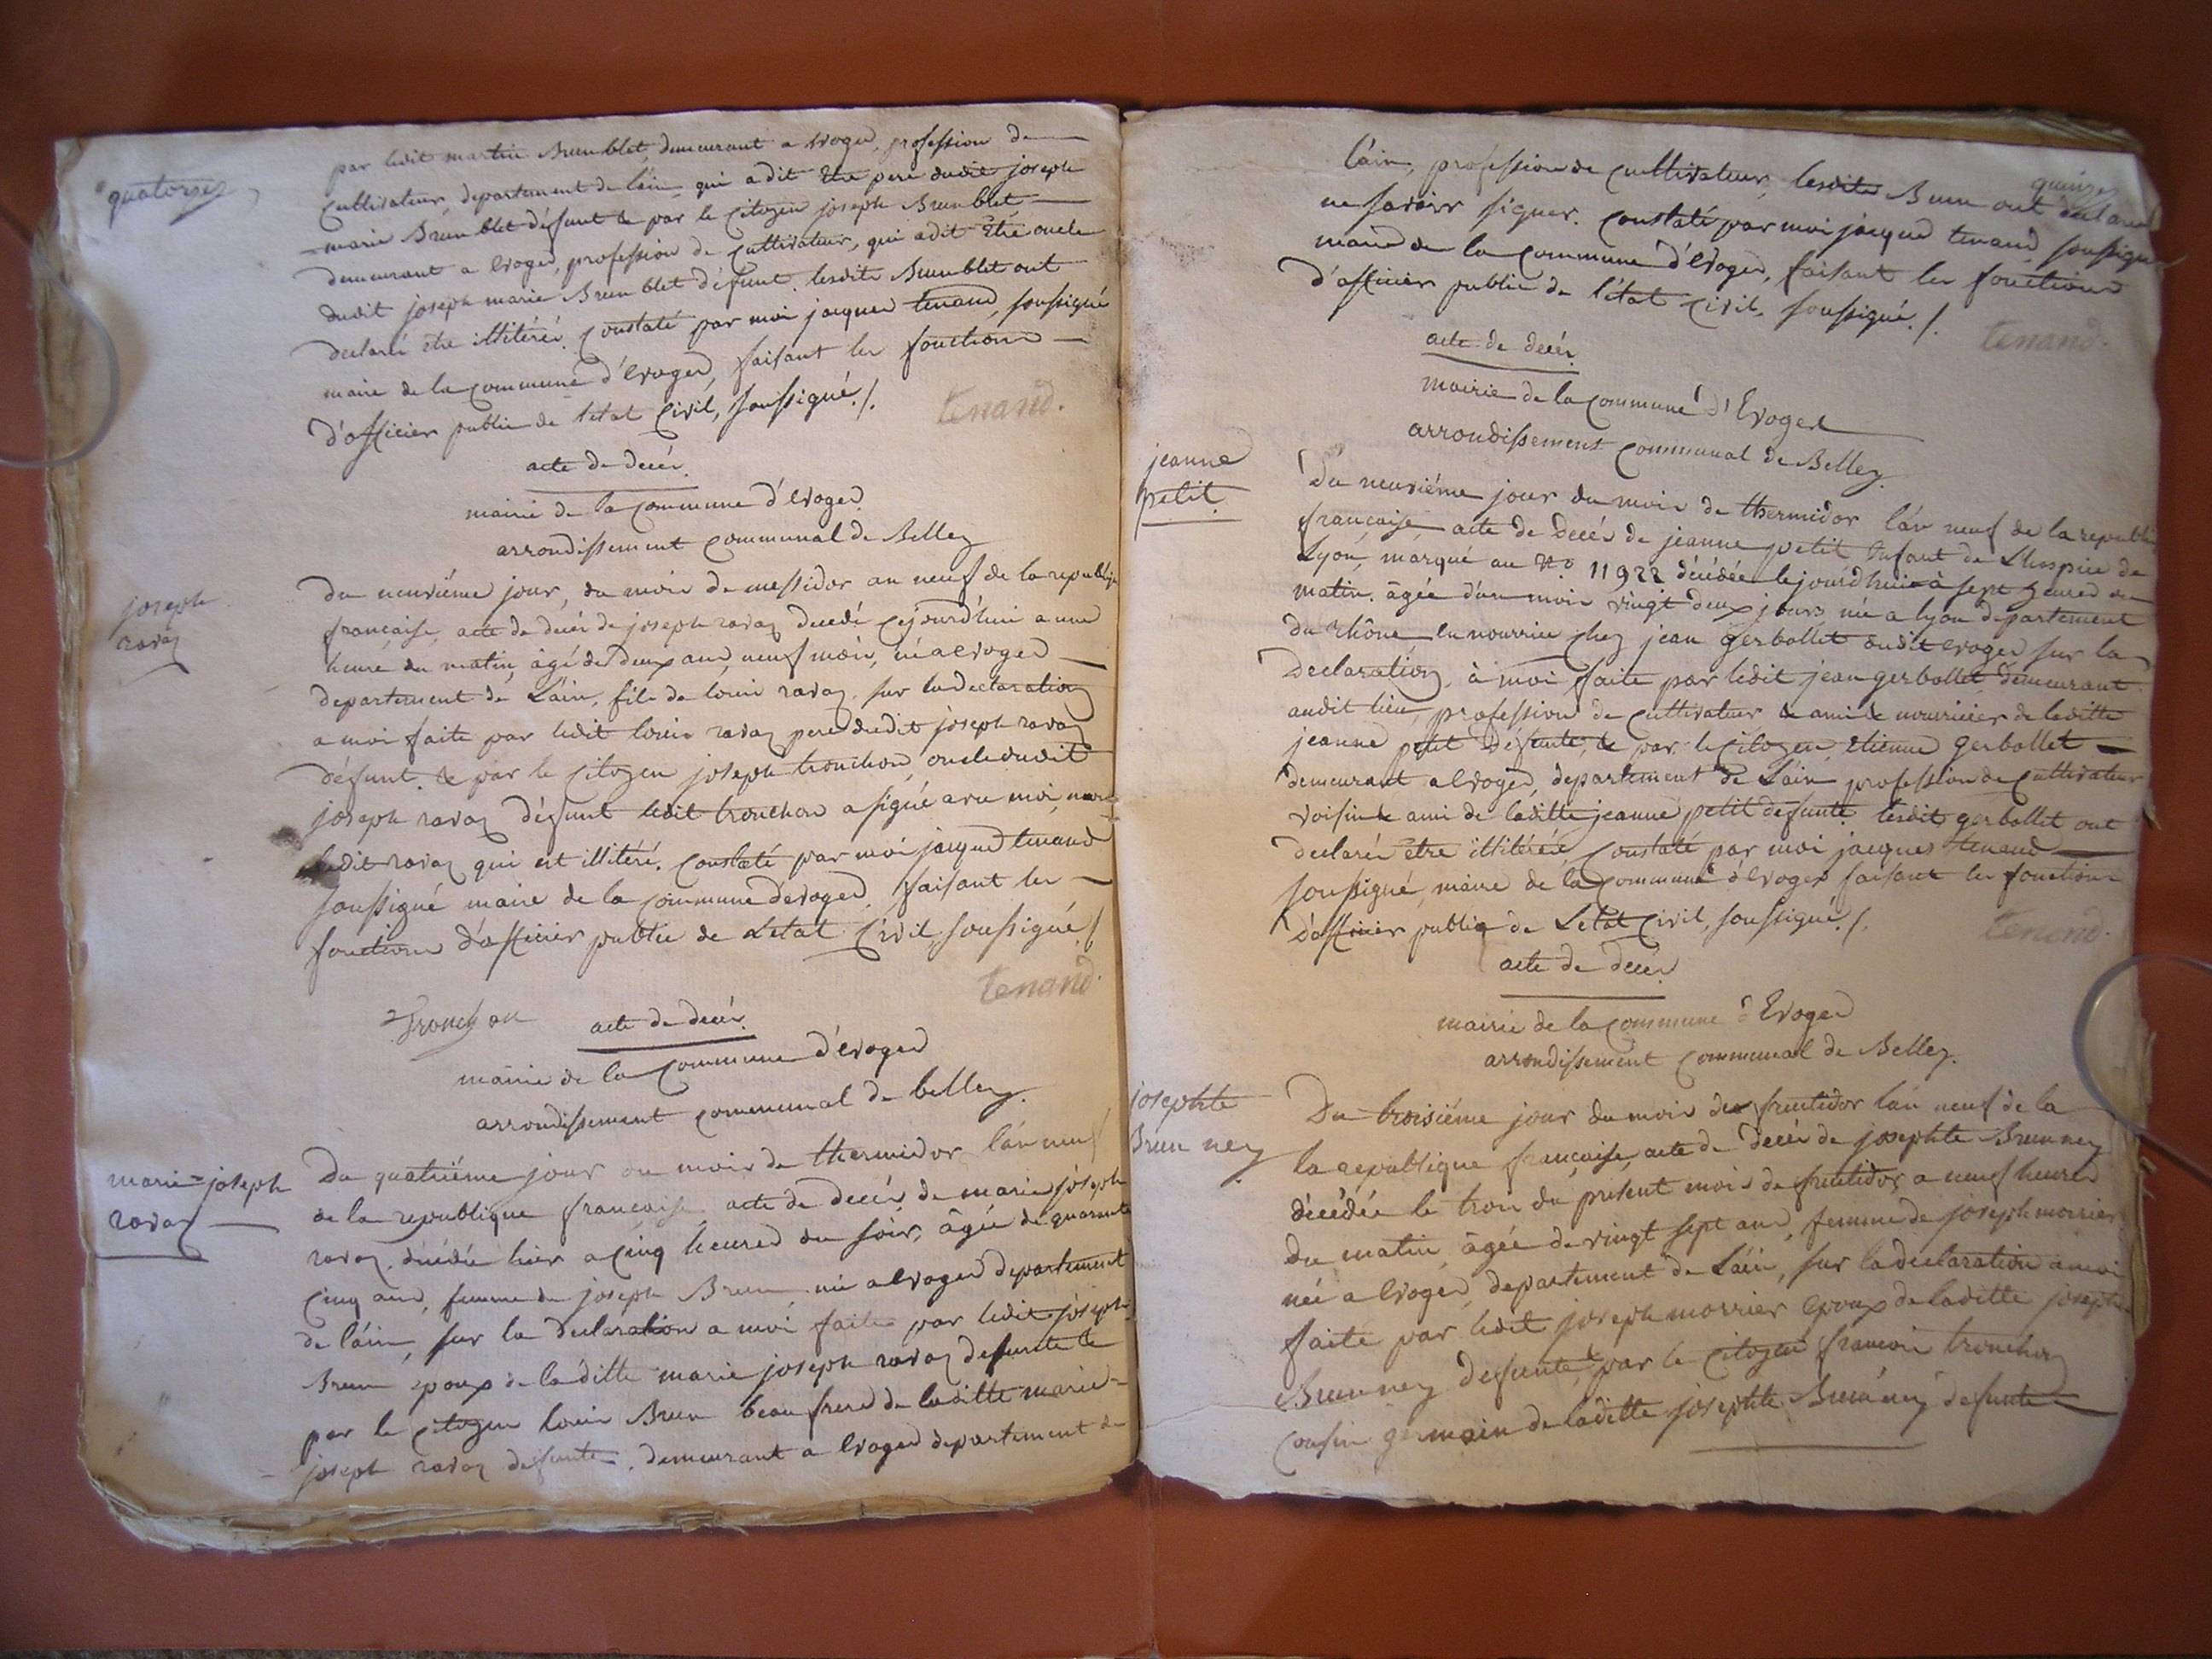 quatorzes
par ledit martin Brun blet, demeurant a Evoges, profession de
cultivateur, departement de láin qui a dit Etre pere dudit joseph
marie Brun blet défunt & par le citoyen joseph Brun blet
demeurant a Evoges, profession de cultivateur, qui a dit Etre oncle
dudit joseph marie Brun blet défunt. lesdits Brun blet ont
declaré être illitéré. constaté par moi jacques tenand, soussigné
maire de la commune d'Evoges, faisant les fonctions
d'officier public de l'etat civil, soussigné ./.
tenand.
acte de decés.
mairie de la commune d'Evoges
arrondissement communal de Belley
joseph
ravaz
du neuviéme jour, du mois de messidor an neuf de la republique
française, acte de decés de joseph ravaz decedé cejourd'hui a une
heure du matin, âgé de deux ans, neuf mois, né a Evoges
departement de Láin, fils de louis ravaz. sur la declaration
a moi faite par ledit louis ravaz pere dudit joseph ravaz
défunt. & par le citoyen joseph tronchon oncle dudit
joseph ravaz défunt ledit tronchon a signé avec moi
ledit ravaz qui est illitéré. constaté par moi jacques tenand
soussigné maire de la commune d'evoges, faisant les
fonctions d'officier public de Letat Civil, soussigné ./
tenand.
Tronchon
acte de decés.
mairie de la commune d'évoges
arrondissement communal de belley.
marie=joseph
ravaz
Du quatriéme jour du mois de thermidor, l'án neuf
de la republique française acte de decés de marie joseph
ravaz, décédée hier a cinq heures du soir, âgée de quarante
cinq ans, femme de joseph Brun née a Evoges departement
de láin, sur la declaration a moi faite par ledit joseph
Brun epoux de laditte marie joseph ravaz defunte &
par le citoyen louis Brun beau frere de laditte marie=
joseph ravaz defunte. demeurant a Evoges departement de
quinzes
láin, profession de cultivateur, lesdits Brun ont declaré
ne savoir signer. constaté par moi jacques tenand soussigné
maire de la commune d'Evoges, faisant les fonctions
d'officier public de l'état civil, soussigné ./.
tenand.
acte de decés.
mairie de la commune d'Evoges
arrondissement communal de Belley.
jeanne
petit.
Du neuviéme jour du mois de thermidor l'án neuf de la republi
française acte de Decés de jeanne petit Enfant de L'hospice de
Lyon, marqué au N.o 11922 décédée le jourd'hui à sept heures du
matin. âgée d'un mois vingt deux jours, née a lyon departement
du Rhône, en nourrice chez jean gerbollet dudit evoges sur la
Declaration, à moi faite par ledit jean gerbollet demeurant
audit lieu, profession de cultivateur & ami & nourricier de laditte
jeanne petit défunte, & par le citoyen Etienne gerbollet
demeurant a Evoges, departement de Láin profession de cultivateur
voisin & ami de laditte jeanne petit defunte. lesdits gerbollet ont
declarés être illitérés constaté par moi jacques tenand
soussigné, maire de la commune d'Evoges faisant les fonctions
d'officier public de Létat civil, soussigné ./.
tenand.
acte de decés
mairie de la commune d'Evoges
arrondissement communal de Belley.
josephte
Brun ney
Du troisiéme jour du mois de fructidor l'án neuf de la
la republique française, acte de decés de josephte Brun ney
décédée le trois du present mois de fructidor, a neuf heures
du matin, âgée de vingt sept ans, femme de joseph morrier
née a Evoges, departement de Láin, sur la declaration a moi
faite par ledit joseph morrier époux de laditte josephte
Brun ney defunte, & par le citoyen francois tronchon
cousin germain de laditte josephte Brun ney defunte